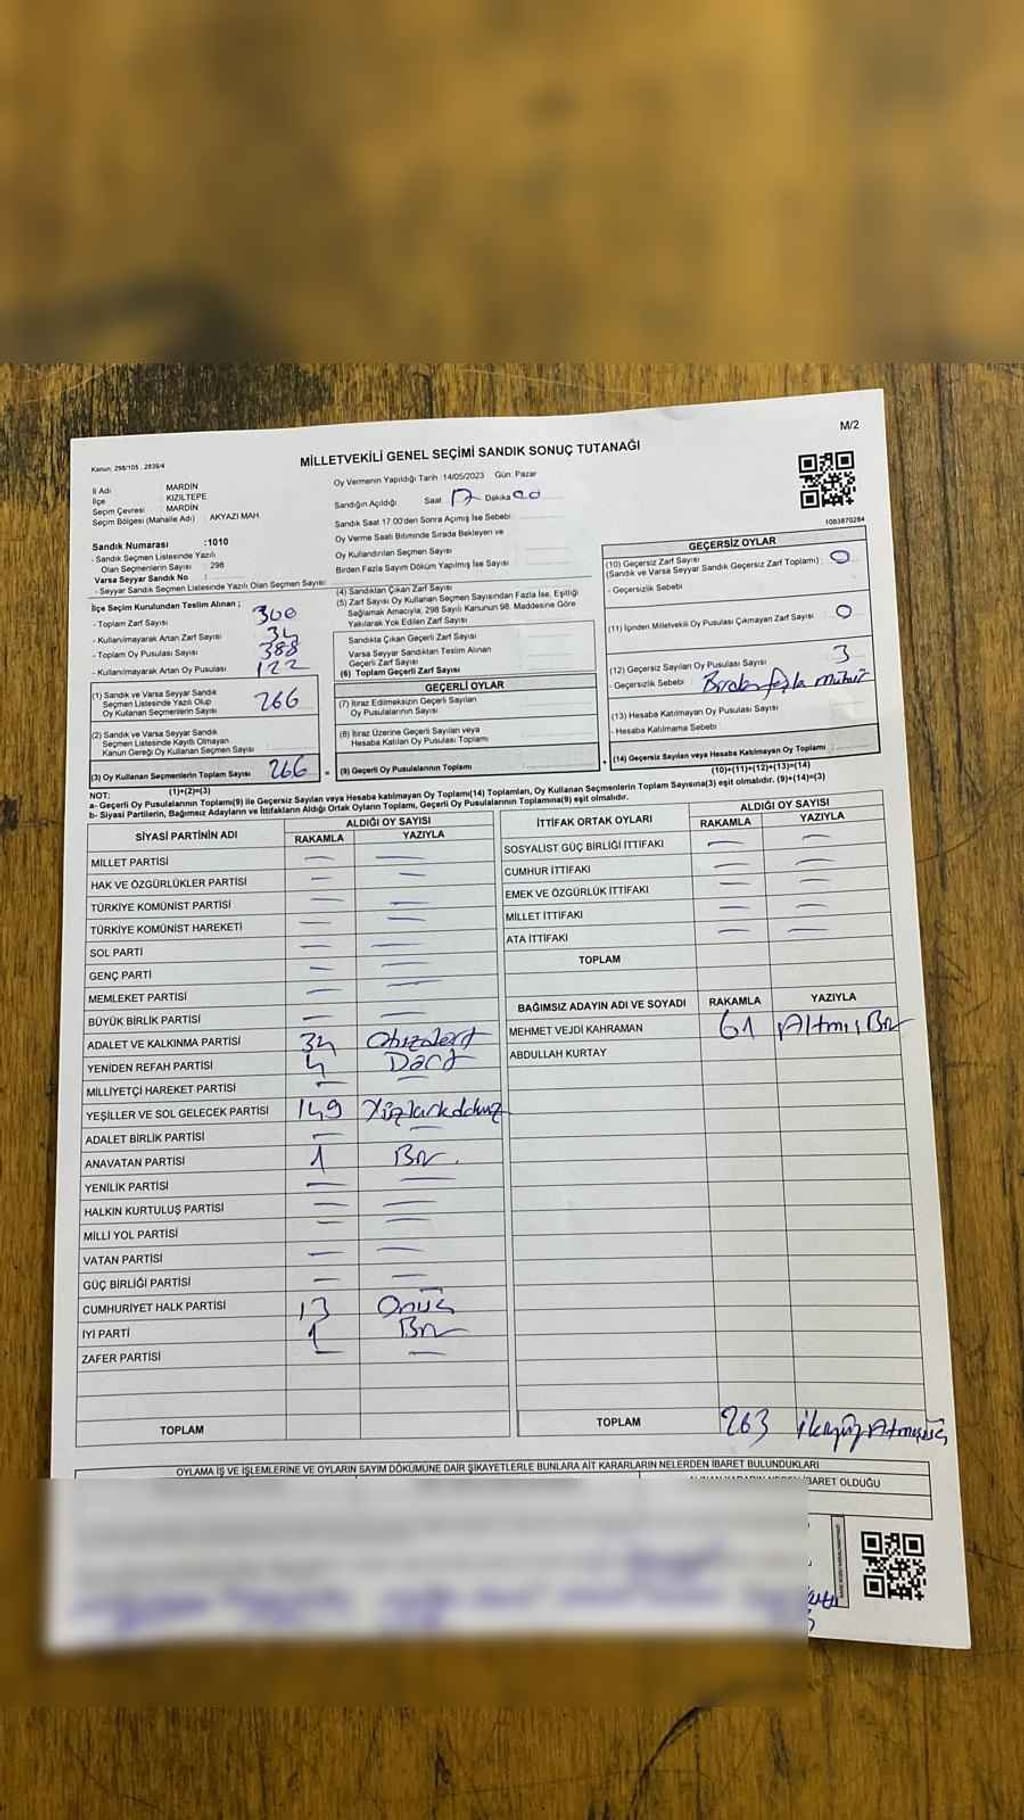 M/2
Kanun: 298/105 , 2839/4
MİLLETVEKİLİ GENEL SEÇİMİ SANDIK SONUÇ TUTANAĞI
İl Adı MARDİN
İlçe KIZILTEPE
Seçim Çevresi MARDİN
Seçim Bölgesi (Mahalle Adı) AKYAZI MAH.
Sandık Numarası :1010
- Sandık Seçmen Listesinde Yazılı
Olan Seçmenlerin Sayısı : 298
Varsa Seyyar Sandık No :
- Seyyar Sandık Seçmen Listesinde Yazılı Olan Seçmen Sayısı:
Oy Vermenin Yapıldığı Tarih :14/05/2023 Gün: Pazar
Sandığın Açıldığı Saat 17 Dakika 00
Sandık Saat 17.00'den Sonra Açımış İse Sebebi
Oy Verme Saati Bitiminde Sırada Bekleyen ve
Oy Kullandırılan Seçmen Sayısı
Birden Fazla Sayım Döküm Yapılmış İse Sayısı
1083870284
İlçe Seçim Kurulundan Teslim Alınan ;
- Toplam Zarf Sayısı 300
- Kullanılmayarak Artan Zarf Sayısı 34
- Toplam Oy Pusulası Sayısı 388
- Kullanılmayarak Artan Oy Pusulası 122
(1) Sandık ve Varsa Seyyar Sandık
Seçmen Listesinde Yazılı Olup
Oy Kullanan Seçmenlerin Sayısı 266
(2) Sandık ve Varsa Seyyar Sandık
Seçmen Listesinde Kayıtlı Olmayan
Kanun Gereği Oy Kullanan Seçmen Sayısı
(3) Oy Kullanan Seçmenlerin Toplam Sayısı 266
(1)+(2)=(3)
(4) Sandıktan Çıkan Zarf Sayısı
(5) Zarf Sayısı Oy Kullanan Seçmen Sayısından Fazla İse, Eşitliği
Sağlamak Amacıyla, 298 Sayılı Kanunun 98. Maddesine Göre
Yakılarak Yok Edilen Zarf Sayısı
Sandıkta Çıkan Geçerli Zarf Sayısı
Varsa Seyyar Sandıktan Teslim Alınan
Geçerli Zarf Sayısı
(6) Toplam Geçerli Zarf Sayısı
GEÇERLİ OYLAR
(7) İtiraz Edilmeksizin Geçerli Sayılan
Oy Pusulalarının Sayısı
(8) İtiraz Üzerine Geçerli Sayılan veya
Hesaba Katılan Oy Pusulası Toplamı
= (9) Geçerli Oy Pusulalarının Toplamı
GEÇERSİZ OYLAR
(10) Geçersiz Zarf Sayısı
(Sandık ve Varsa Seyyar Sandık Geçersiz Zarf Toplamı) : 0
- Geçersizlik Sebebi
(11) İçinden Milletvekili Oy Pusulası Çıkmayan Zarf Sayısı 0
(12) Geçersiz Sayılan Oy Pusulası Sayısı 3
- Geçersizlik Sebebi Birden fazla mühür
(13) Hesaba Katılmayan Oy Pusulası Sayısı
- Hesaba Katılmama Sebebi
+ (14) Geçersiz Sayılan veya Hesaba Katılmayan Oy Toplamı
(10)+(11)+(12)+(13)=(14)
NOT:
a- Geçerli Oy Pusulalarının Toplamı(9) ile Geçersiz Sayılan veya Hesaba katılmayan Oy Toplamı(14) Toplamları, Oy Kullanan Seçmenlerin Toplam Sayısına(3) eşit olmalıdır. (9)+(14)=(3)
b- Siyasi Partilerin, Bağımsız Adayların ve İttifakların Aldığı Ortak Oyların Toplamı, Geçerli Oy Pusulalarının Toplamına(9) eşit olmalıdır.
SİYASİ PARTİNİN ADI ALDIĞI OY SAYISI
RAKAMLA YAZIYLA
MİLLET PARTİSİ — —
HAK VE ÖZGÜRLÜKLER PARTİSİ — —
TÜRKİYE KOMÜNİST PARTİSİ — —
TÜRKİYE KOMÜNİST HAREKETİ — —
SOL PARTİ — —
GENÇ PARTİ — —
MEMLEKET PARTİSİ — —
BÜYÜK BİRLİK PARTİSİ — —
ADALET VE KALKINMA PARTİSİ 34 Otuzdört
YENİDEN REFAH PARTİSİ 4 Dört
MİLLİYETÇİ HAREKET PARTİSİ — —
YEŞİLLER VE SOL GELECEK PARTİSİ 149 Yüzkırkdokuz
ADALET BİRLİK PARTİSİ — —
ANAVATAN PARTİSİ 1 Bir
YENİLİK PARTİSİ — —
HALKIN KURTULUŞ PARTİSİ — —
MİLLİ YOL PARTİSİ — —
VATAN PARTİSİ — —
GÜÇ BİRLİĞİ PARTİSİ — —
CUMHURİYET HALK PARTİSİ 13 Onüç
İYİ PARTİ 1 Bir
ZAFER PARTİSİ — —
TOPLAM
İTTİFAK ORTAK OYLARI ALDIĞI OY SAYISI
RAKAMLA YAZIYLA
SOSYALİST GÜÇ BİRLİĞİ İTTİFAKI — —
CUMHUR İTTİFAKI — —
EMEK VE ÖZGÜRLÜK İTTİFAKI — —
MİLLET İTTİFAKI — —
ATA İTTİFAKI — —
TOPLAM
BAĞIMSIZ ADAYIN ADI VE SOYADI RAKAMLA YAZIYLA
MEHMET VEJDİ KAHRAMAN 61 Altmış Bir
ABDULLAH KURTAY
TOPLAM 263 ikiyüzAtmışüç
OYLAMA İŞ VE İŞLEMLERİNE VE OYLARIN SAYIM DÖKÜMÜNE DAİR ŞİKAYETLERLE BUNLARA AİT KARARLARIN NELERDEN İBARET BULUNDUKLARI
İBARET OLDUĞU